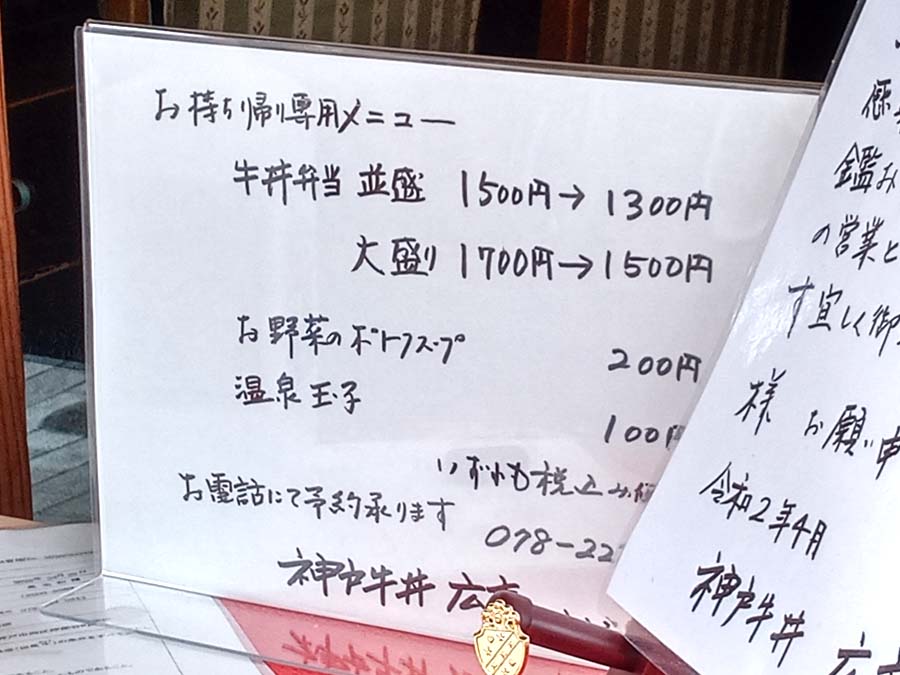 お持ち帰り専用メニュー
牛丼弁当 並盛 1500円→1300円
大盛り 1700円→1500円
お野菜のポトフスープ 200円
温泉玉子 100円
いずれも税込み
お電話にて予約承ります
078-22
神戸牛丼 広
鑑み
の営業と
す宜しく御
様 お願い申
令和2年4月
神戸牛丼
広